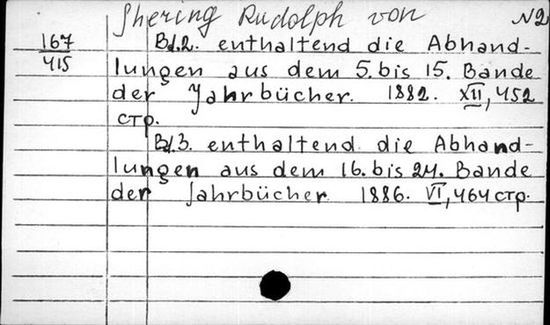 Jhering Rudolph von N2
167
415
Bd.2. enthaltend die Abhand-
lungen aus dem 5. bis 15. Bande
der Jahrbücher. 1882. XII, 452
стр.
Bd.3. enthaltend die Abhand-
lungen aus dem 16. bis 24. Bande
der Jahrbücher 1886. VI, 464 стр.